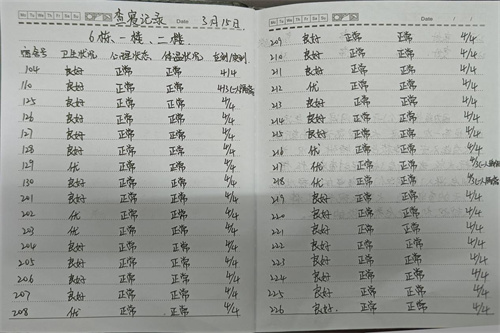 查寝记录 Date 3月15日
6栋、一楼、二楼
宿舍号 卫生状况 心理状态 体温状况 应到/实到
104 良好 正常 正常 4/4
110 良好 正常 正常 4/3
125 良好 正常 正常 4/4
126 良好 正常 正常 4/4
127 良好 正常 正常 4/4
128 良好 正常 正常 4/4
129 优 正常 正常 4/4
130 良好 正常 正常 4/4
201 良好 正常 正常 4/4
202 优 正常 正常 4/4
203 优 正常 正常 4/4
204 良好 正常 正常 4/4
205 良好 正常 正常 4/4
206 良好 正常 正常 4/4
207 良好 正常 正常 4/4
208 优 正常 正常 4/4
Date
209 良好 正常 正常 4/4
210 良好 正常 正常 4/4
211 良好 正常 正常 4/4
212 优 正常 正常 4/4
213 良好 正常 正常 4/4
214 良好 正常 正常 4/4
215 良好 正常 正常 4/4
216 优 正常 正常 4/4
217 优 正常 正常 4/3
218 优 正常 正常 4/3
219 良好 正常 正常 4/4
220 良好 正常 正常 4/4
221 良好 正常 正常 4/4
222 良好 正常 正常 4/4
223 良好 正常 正常 4/4
224 良好 正常 正常 4/4
225 良好 正常 正常 4/4
226 良好 正常 正常 4/4